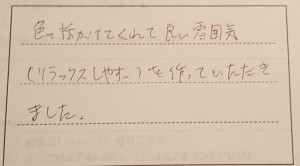 色々話かけてくれて良い雰囲気
(リラックスしやすい)を作っていただき
ました。